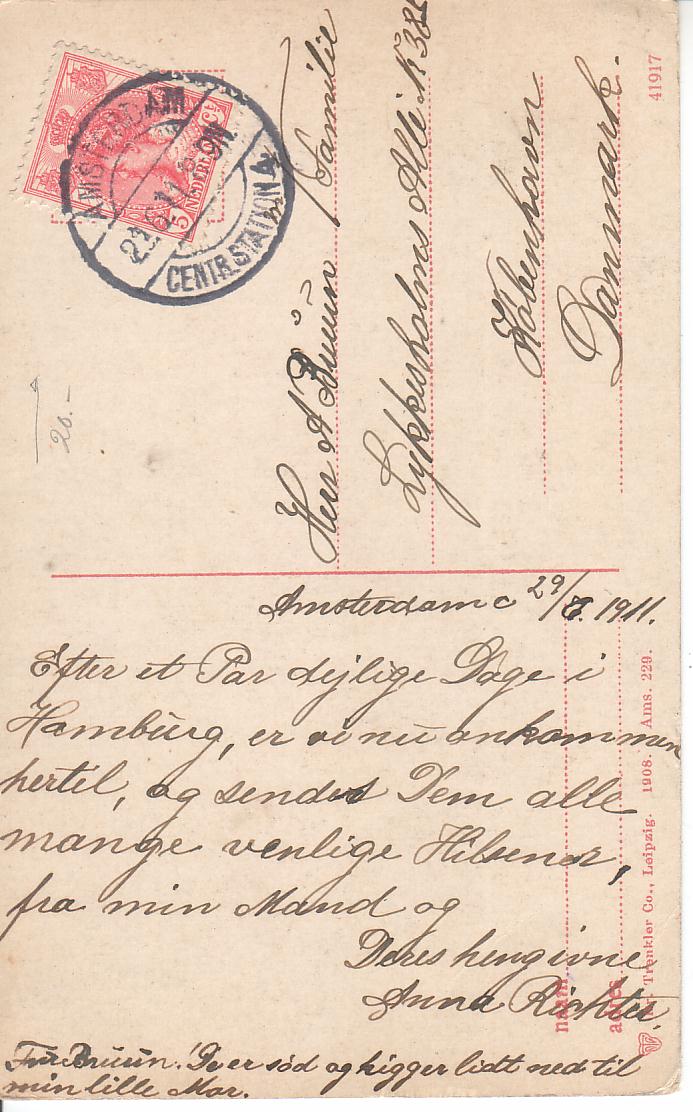 AMSTERDAM
CENTR. STATION 4
5 NEDERLAND
20.-
Herr A Bruun Familie
Lykkesholms Allé No 38
København
Danmark.
41917
Amsterdam d 29/ 1911.
Efter et Par dejlige Dage i
Hamburg, er vi nu ankommen
hertil, og sender Dem alle
mange venlige Hilsener,
fra min Mand og
Deres hengivne
Anna Richter.
Fru Bruun! De er sød og kigger lidt ned til
min lille Mor.
naam
adres
Dr. Trenkler Co., Leipzig. 1908. Ams. 229.